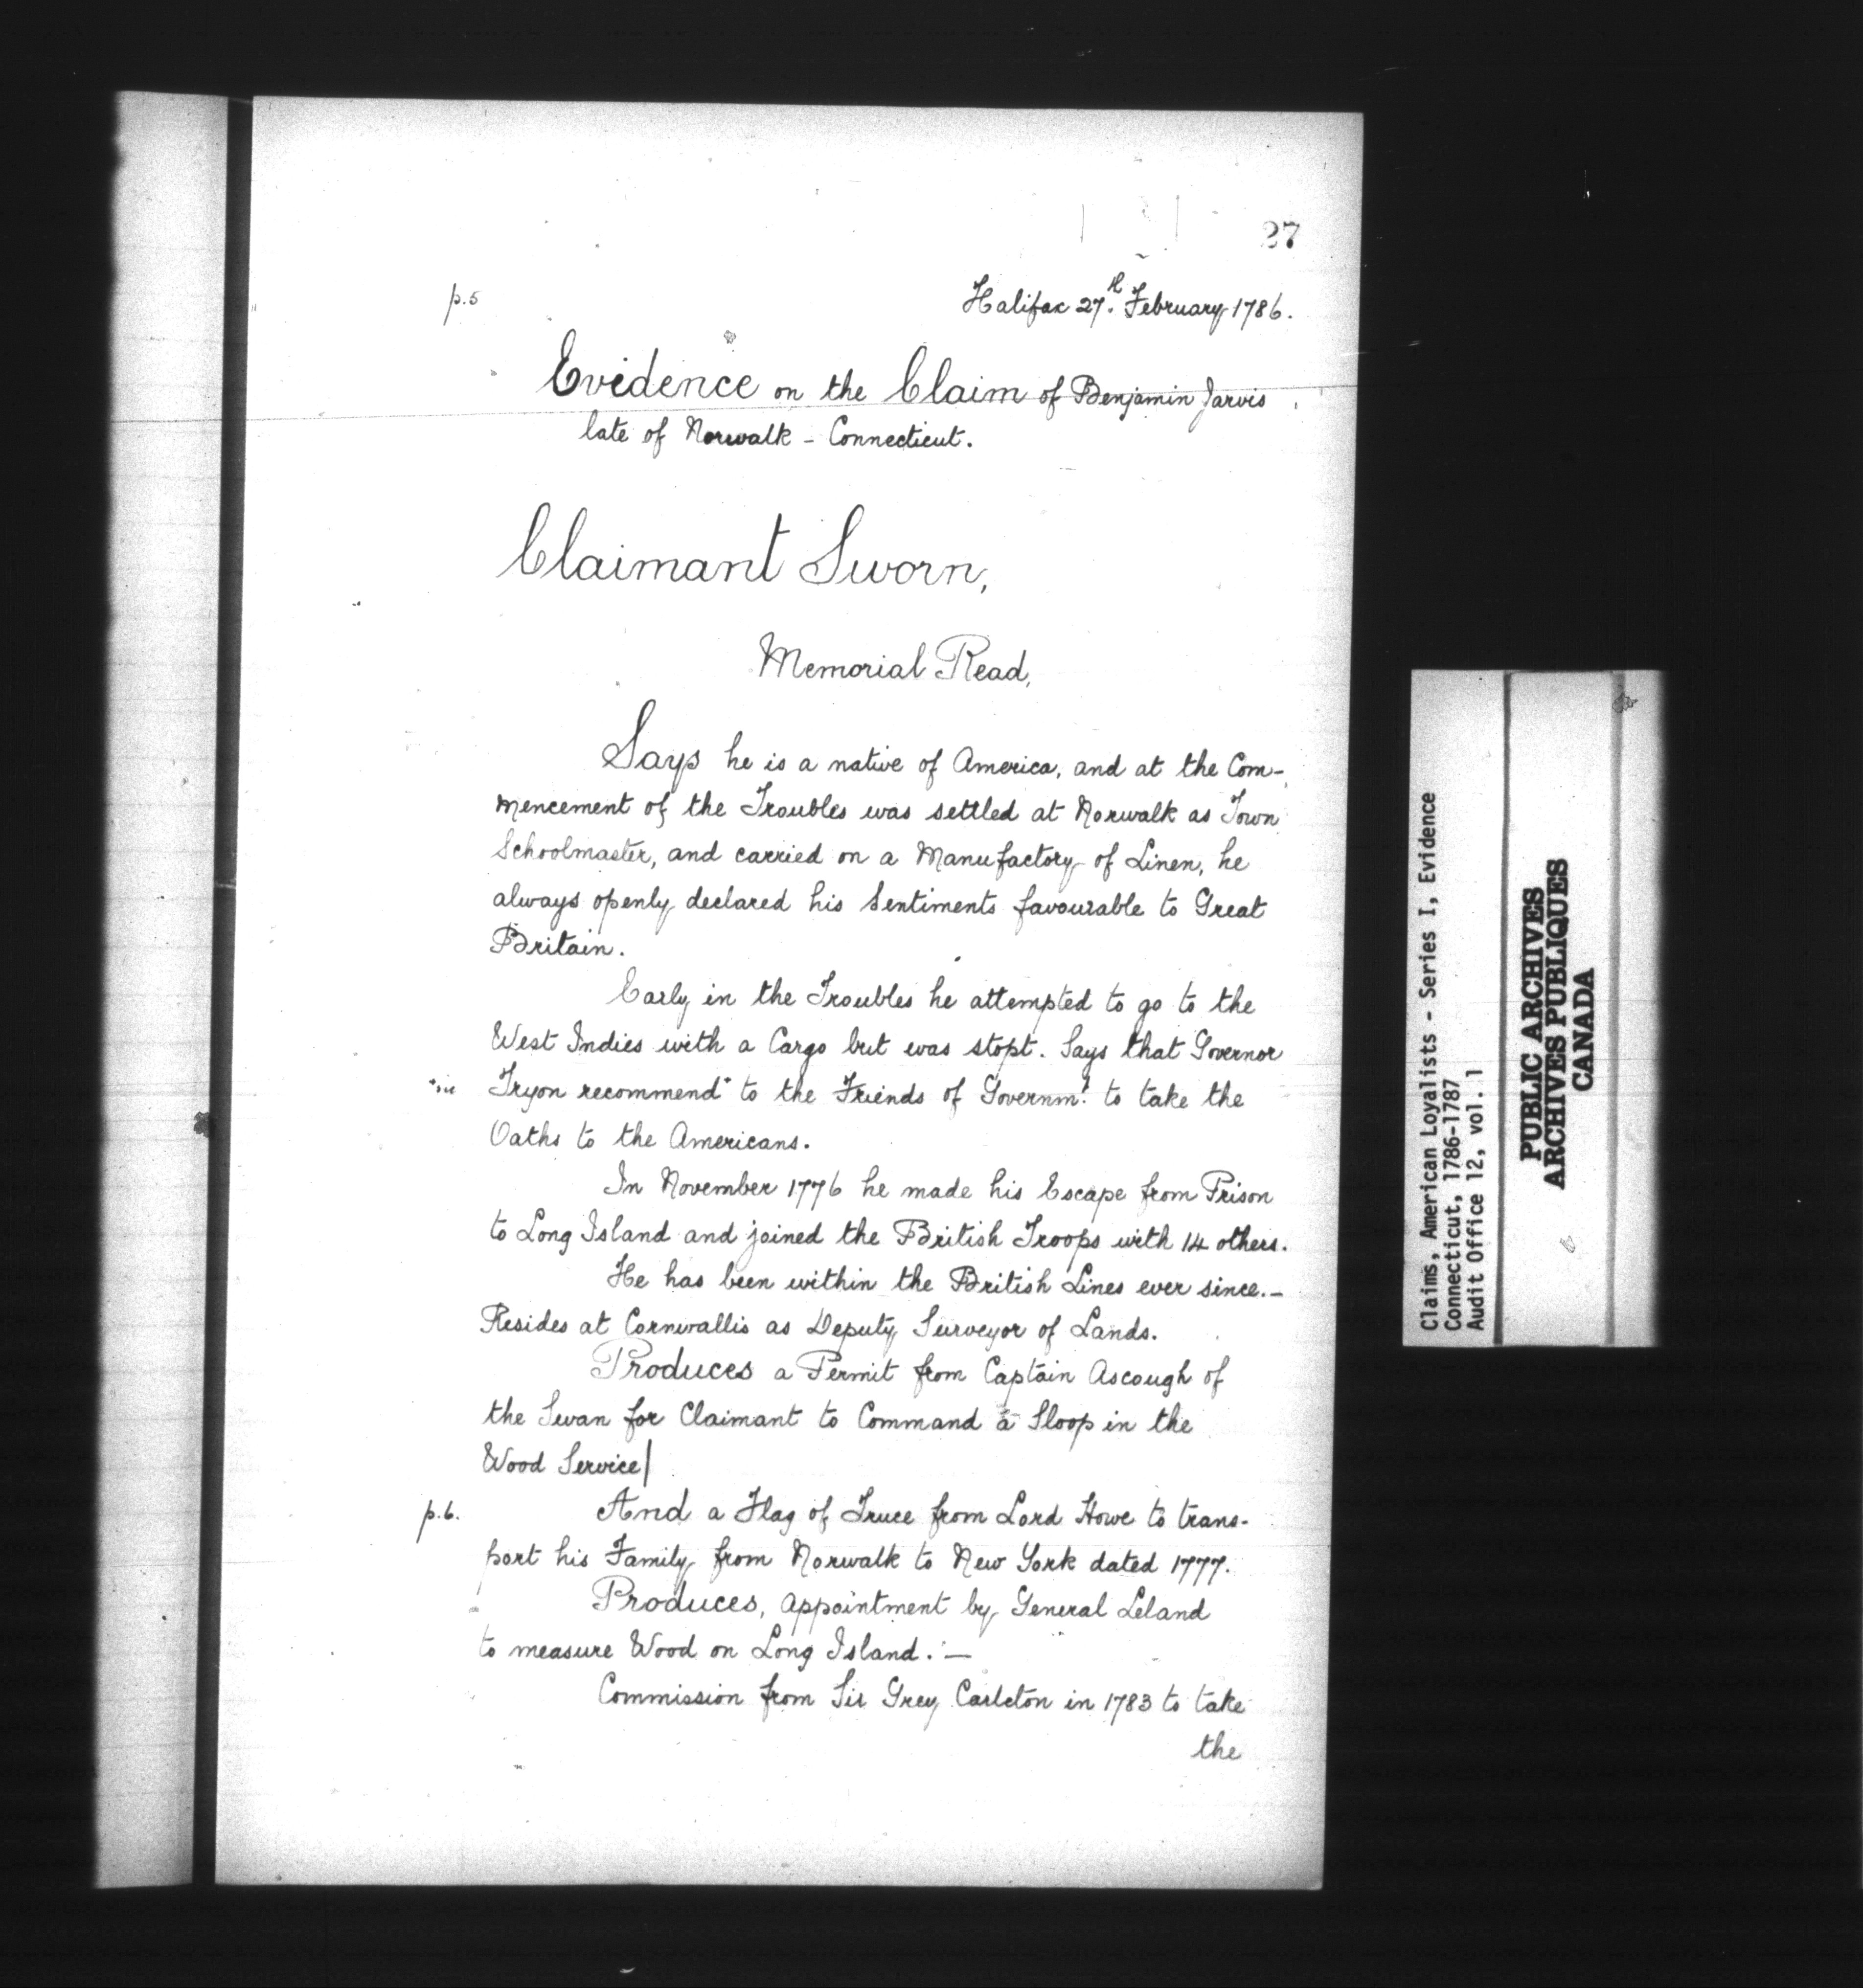 27
p.5
Halifax 27.th February 1786.
Evidence on the Claim of Benjamin Jarvis
late of Norwalk - Connecticut.
Claimant Sworn,
Memorial Read,
Says he is a native of America, and at the Com-
mencement of the Troubles was settled at Norwalk as Town
Schoolmaster, and carried on a Manufactory of Linen, he
always openly declared his Sentiments favourable to Great
Britain.
Early in the Troubles he attempted to go to the
West Indies with a Cargo but was stopt. Says that Governor
Tryon recommend* to the Friends of Governm.t to take the
Oaths to the Americans.
In November 1776 he made his Escape from Prison
to Long Island and joined the British Troops with 14 others.
He has been within the British Lines ever since.-
Resides at Cornwallis as Deputy Surveyor of Lands.
Produces a Permit from Captain Ascough of
the Swan for Claimant to Command a Sloop in the
Wood Service/
p.6.
And a Flag of Truce from Lord Howe to trans-
port his Family from Norwalk to New York dated 1777.
Produces, appointment by General Leland
to measure Wood on Long Island. —
Commission from Sir Grey Carleton in 1783 to take
the
Claims, American Loyalists - Series I, Evidence
Connecticut, 1786-1787
Audit Office 12, vol. 1
PUBLIC ARCHIVES
ARCHIVES PUBLIQUES
CANADA